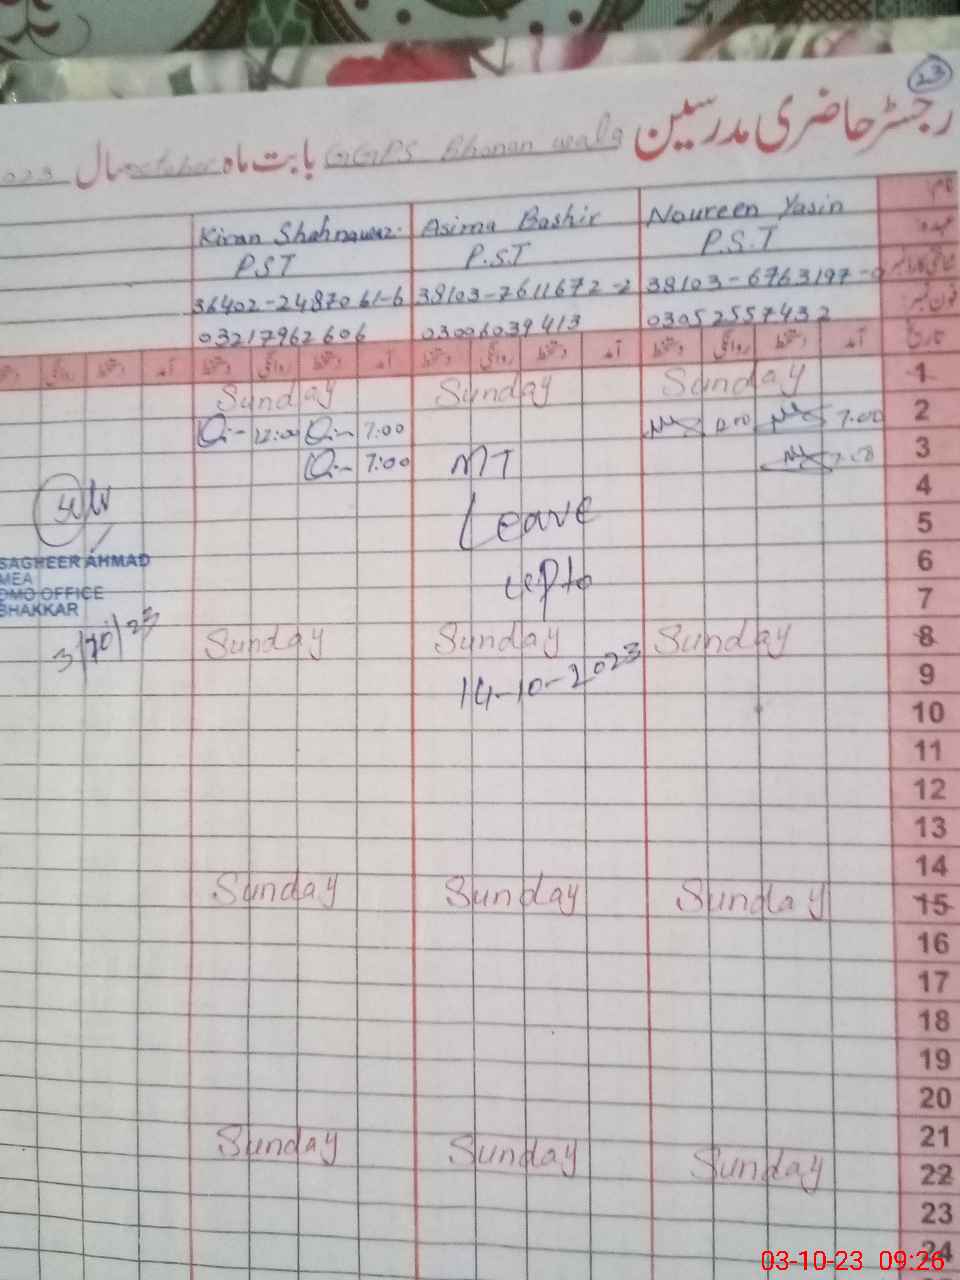 23
رجسٹر حاضری مدرسین GGPS Bhanan wala بابت ماہ october سال 023
نام Naureen Yasin Asima Bashir Kiran Shahnawaz
عہدہ P.S.T P.S.T PST
38103-6763197-0 38103-7611672-2 36402-2487061-6
فون نمبر: 03052557432 03006039413 03217962606
تاریخ آمد دستخط روانگی دستخط آمد دستخط روانگی دستخط آمد دستخط روانگی دستخط آمد دستخط روانگی
1 Sunday Sunday Sunday
2 7:00 7:00 12:00
3 7:00 MT
4
5 Leave
6
7 upto
8 Sunday Sunday Sunday
9 14-10-2023
10
11
12
13
14
15 Sunday Sunday Sunday
16
17
18
19
20
21
22 Sunday Sunday Sunday
23
24
SAGHEER AHMAD
MEA
DMO OFFICE
BHAKKAR
3/10/23
03-10-23 09:26